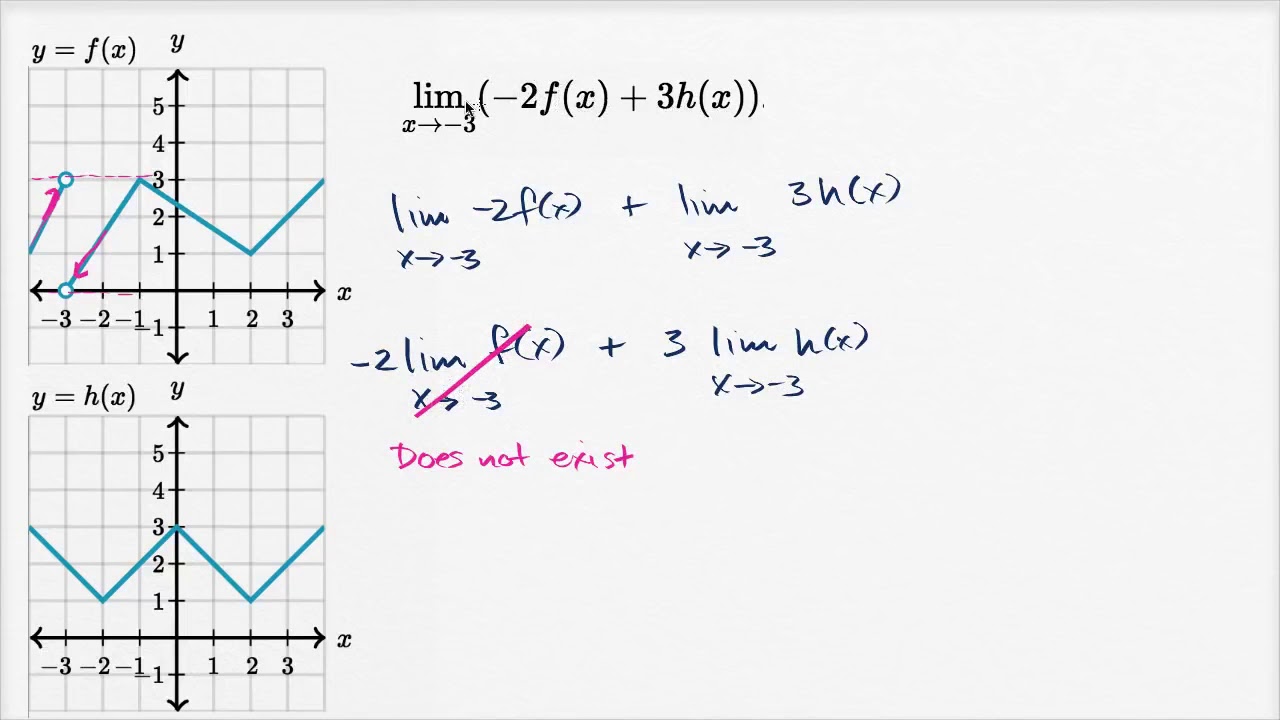 y = f(x)
y
5
4
3
2
1
x
−3 −2 −1 1 2 3
−1
y = h(x)
y
5
4
3
2
1
x
−3 −2 −1 1 2 3
−1
lim (−2f(x) + 3h(x)).
x→−3
lim -2f(x) + lim 3h(x)
x→-3 x→-3
-2 lim f(x) + 3 lim h(x)
x→-3 x→-3
Does not exist